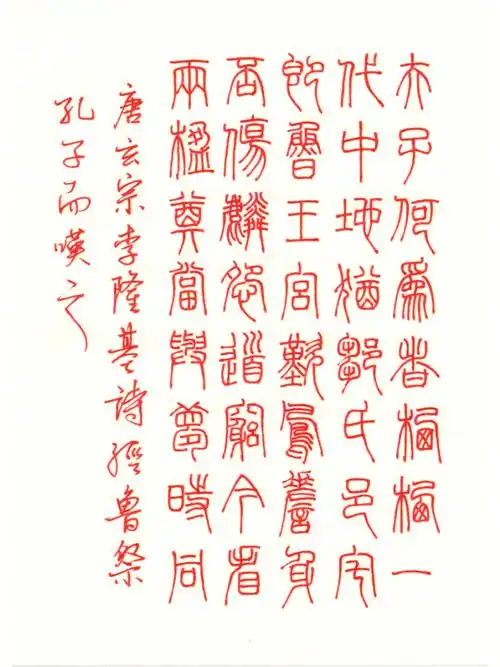 夫子何為者栖栖一
代中地猶鄹氏邑宅
即魯王宮歎鳳嗟身
否傷麟怨道窮今看
兩楹奠當與夢時同
唐玄宗李隆基詩經魯祭
孔子而嘆之